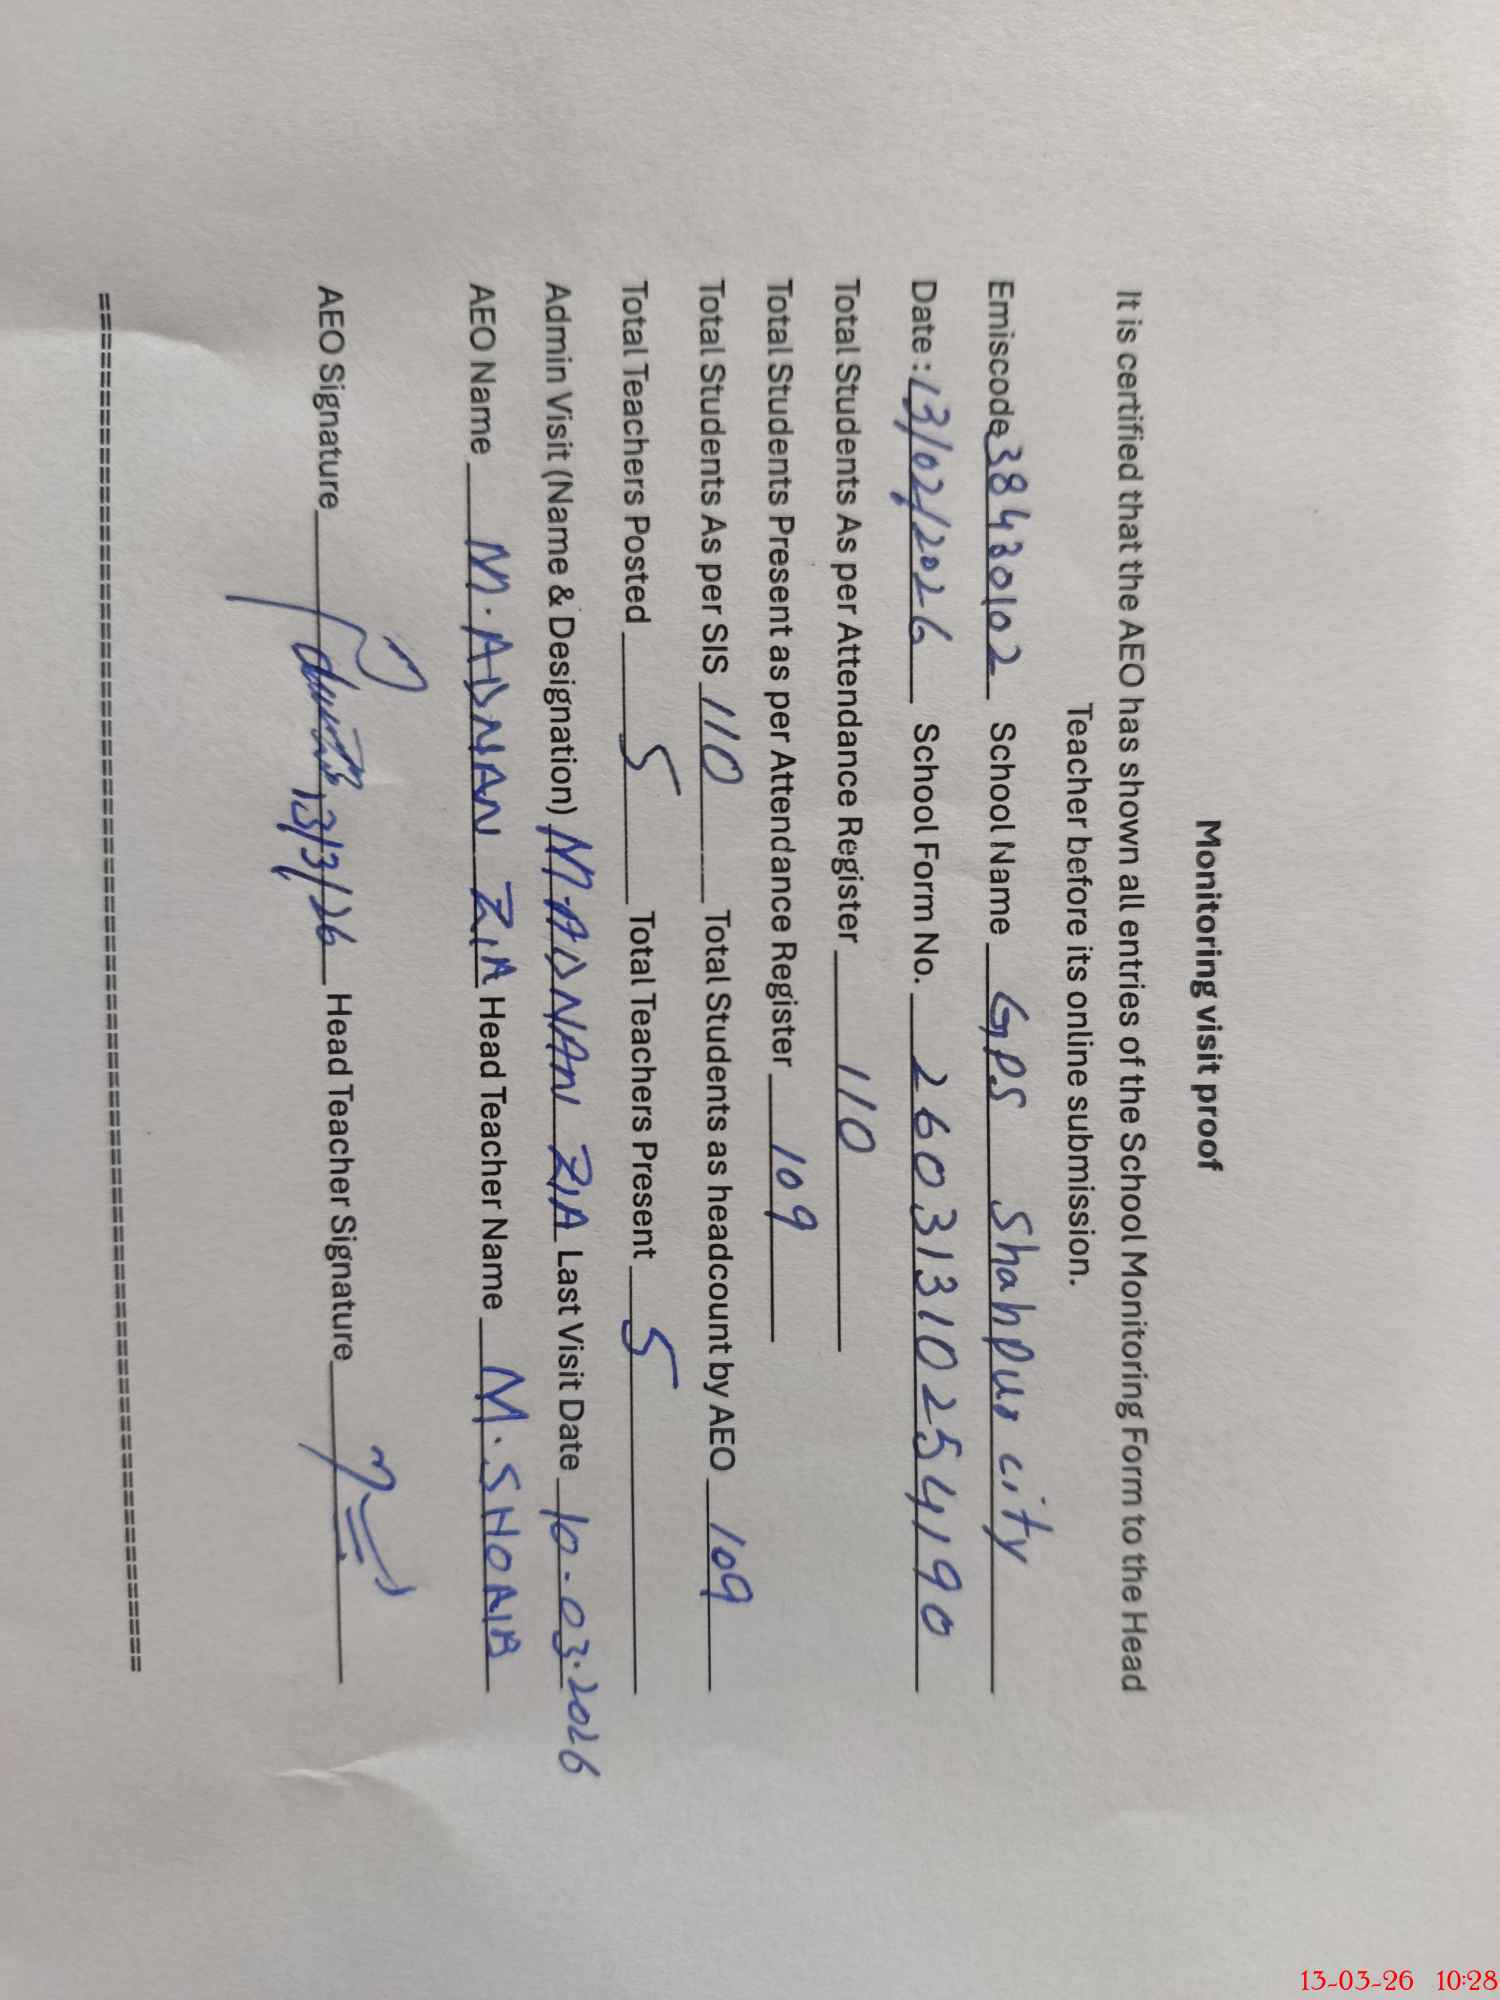 Monitoring visit proof
It is certified that the AEO has shown all entries of the School Monitoring Form to the Head
Teacher before its online submission.
Emiscode 38430102 School Name GPS Shahpur city
Date: 13/02/2026 School Form No. 26031310254190
Total Students As per Attendance Register 110
Total Students Present as per Attendance Register 109
Total Students As per SIS 110 Total Students as headcount by AEO 109
Total Teachers Posted 5 Total Teachers Present 5
Admin Visit (Name & Designation) M. ADNAN ZIA Last Visit Date 10-03-2026
AEO Name M. ADNAN ZIA Head Teacher Name M. SHOAIB
AEO Signature 13/3/26 Head Teacher Signature
==========================================================================
13-03-26 10:28